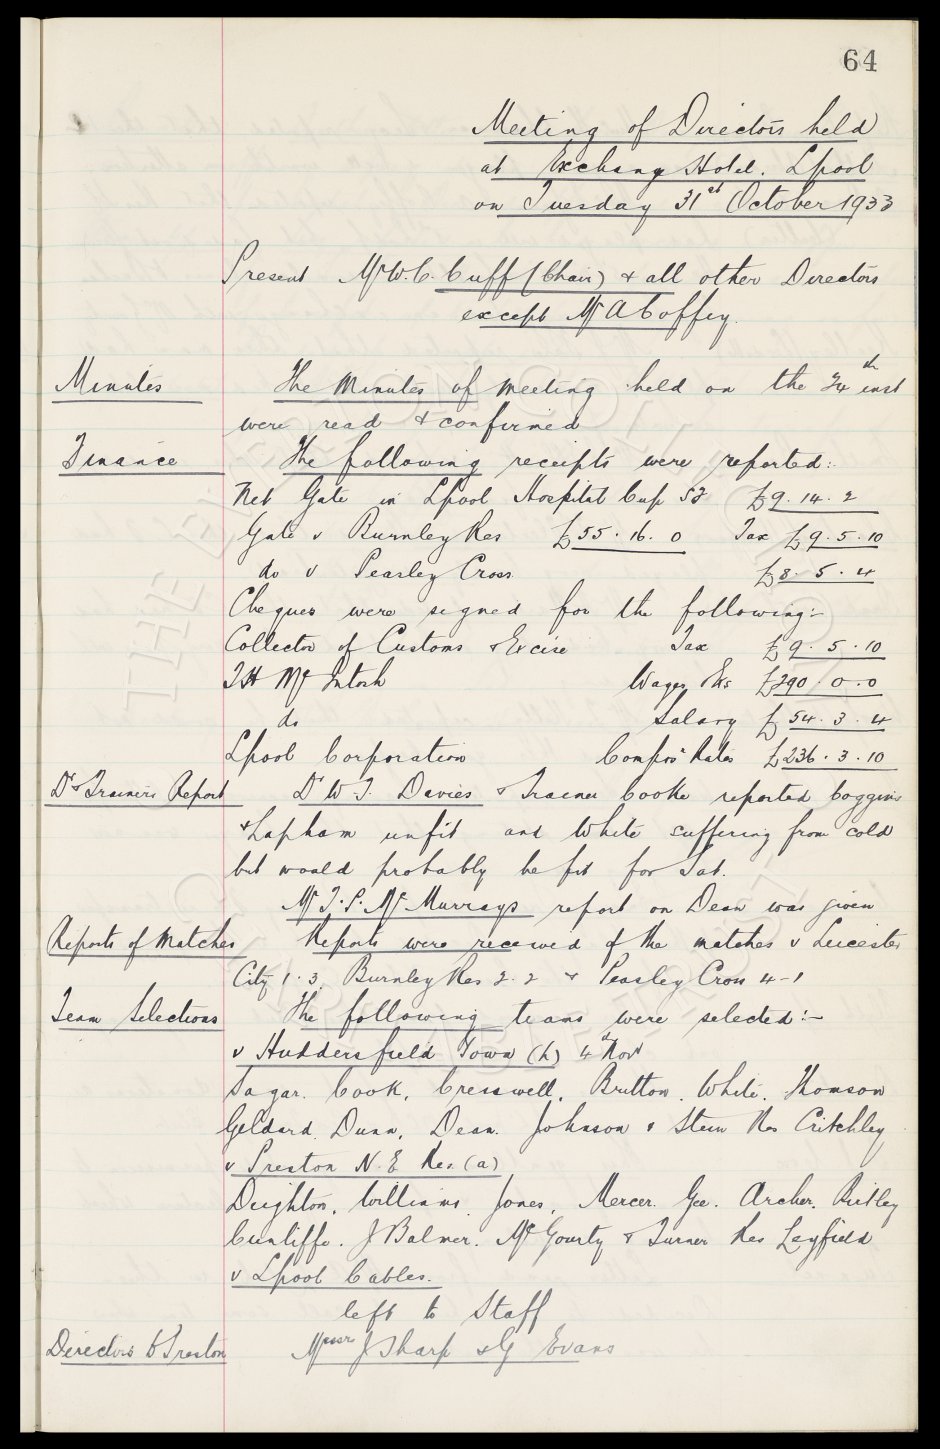 64
Meeting of Directors held
at Exchange Hotel. Lpool
on Tuesday 31st October 1933
Present Mr W.C. Cuff (Chair) & all other Directors
except Mr A Coffey.
Minutes The minutes of meeting held on the 24th inst
were read & confirmed
Finance The following receipts were reported:-
Net Gate in Lpool Hospital Cup £9.14.2
Gate v Burnley Res £55.16.0 Tax £9.5.10
do v Peasley Cross £8.5.4
Cheques were signed for the following:-
Collector of Customs & Excise Tax £9.5.10
T H McIntosh Wages Exs £290.0.0
do Salary £54.3.4
Lpool Corporation Compos Rates £236.3.10
Dr & Trainers Report Dr W.T. Davies & Trainer Cooke reported Coggins
& Lapham unfit and White suffering from cold
but would probably be fit for Sat.
Mr T.P. McMurrays report on Dean was given
Reports of Matches Reports were received of the matches v Leicester
City 1.3, Burnley Res 2.2 & Peasley Cross 4-1
Team Selections The following teams were selected:-
v Huddersfield Town (h) 4th Nov
Sagar. Cook, Cresswell, Britton. White. Thomson
Geldard. Dunn, Dean. Johnson & Stein Res Critchley
v Preston N.E Res. (a)
Deighton, Williams. Jones, Mercer. Gee. Archer. Ritley
Cunliffe. J Balmer. McGourty & Turner Res Leyfield
v Lpool Cables.
left to Staff
Directors to Preston Messrs J Sharp & G Evans